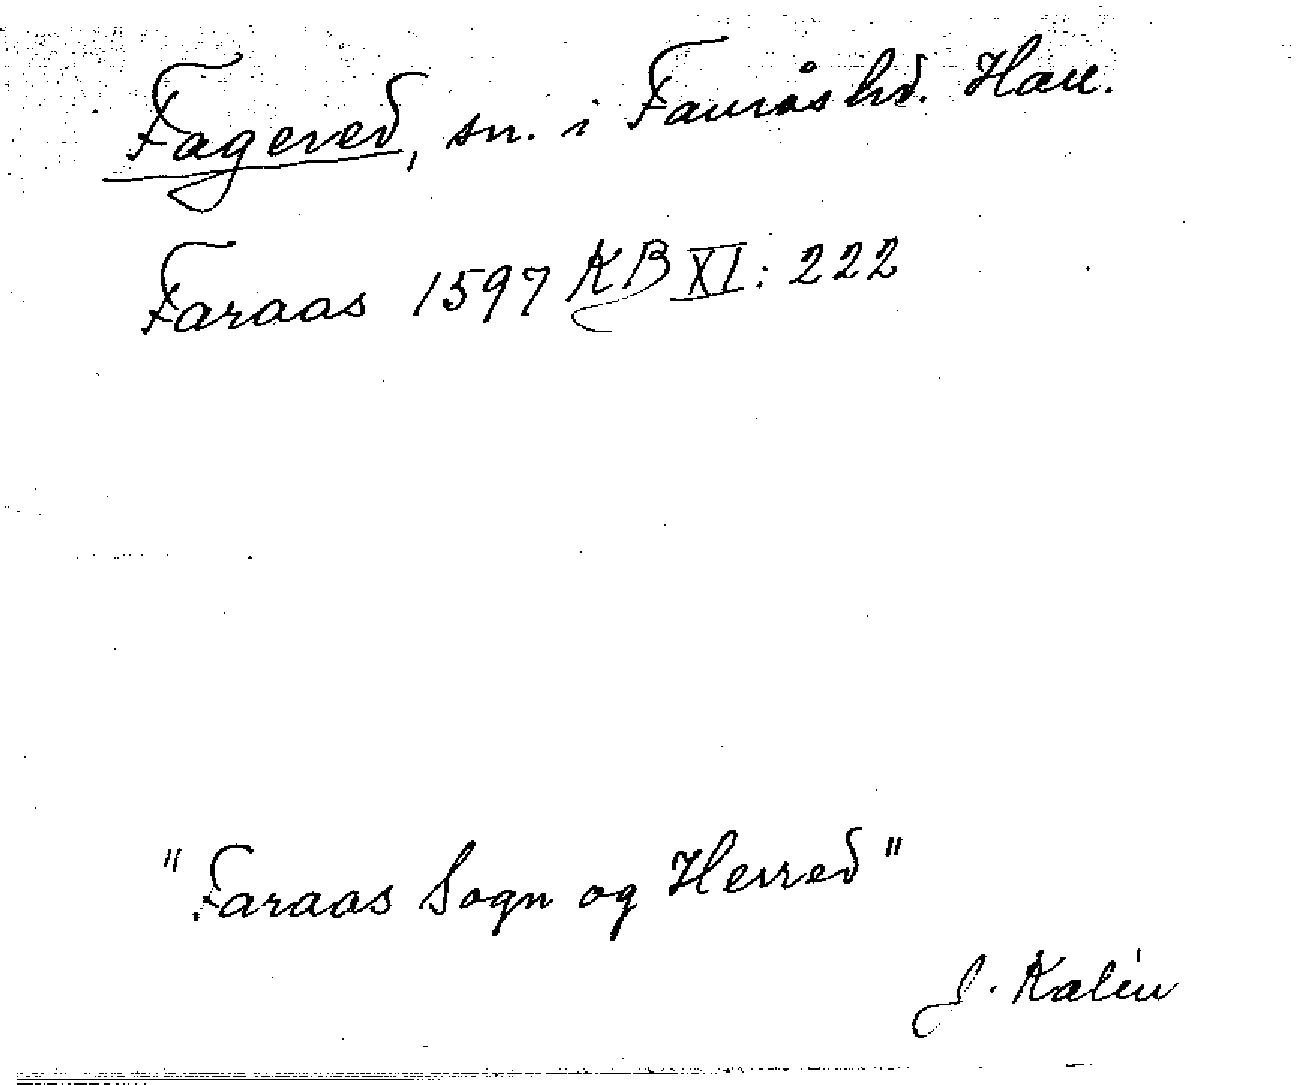 Fagered, sn. i Fauråshd. Hall.
Faraas 1597 KB XI: 222
"Faraas Sogn og Herred"
J. Kalén